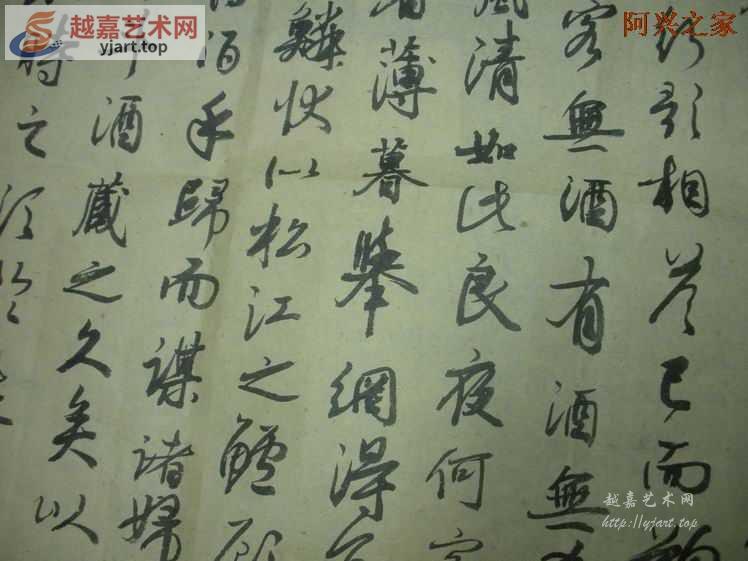 越嘉艺术网
yjart.top
阿兴之家
行歌相答已而
客無酒有酒無
風清如此良夜何客
薄暮舉網得
鱗狀似松江之鱸顧
乎歸而謀諸婦
酒藏之久矣以
時之須
越嘉艺术网
http://yjart.top